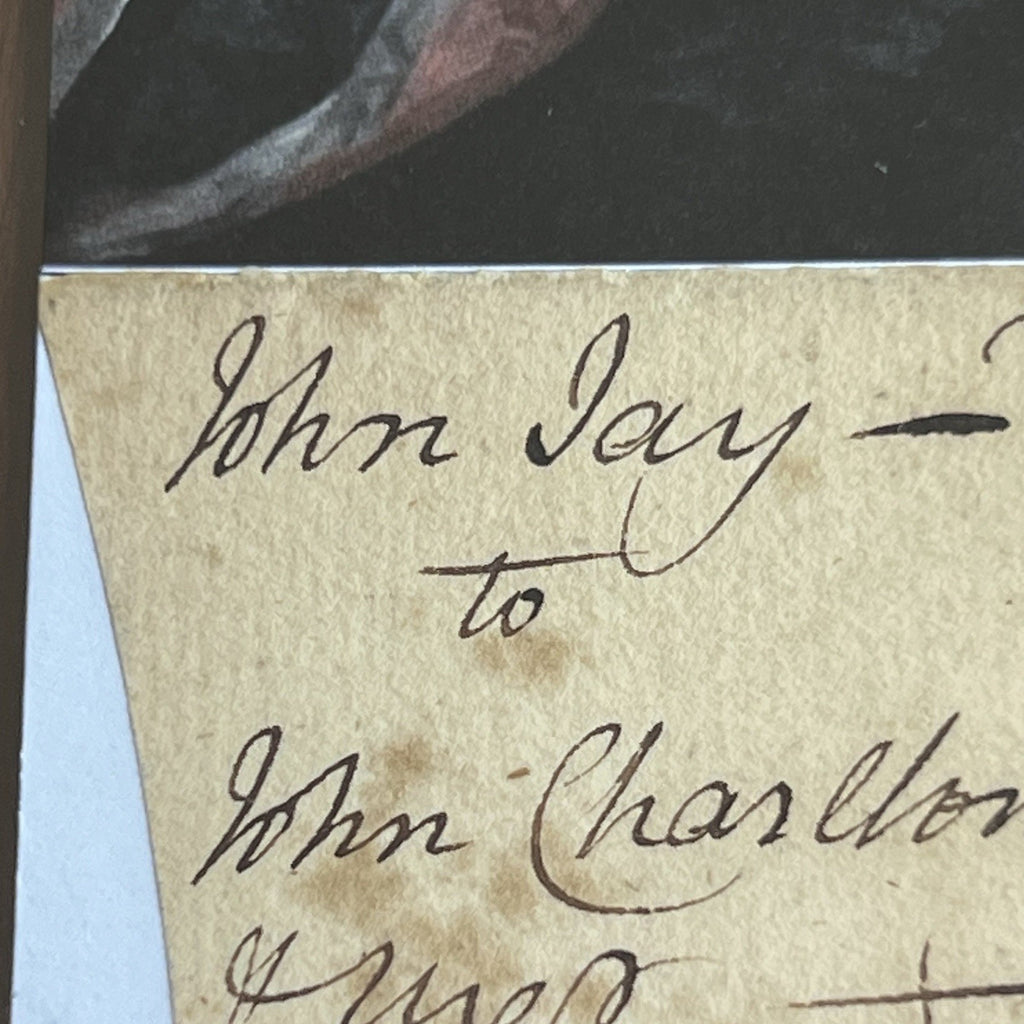 John Jay —
to
John Charlton